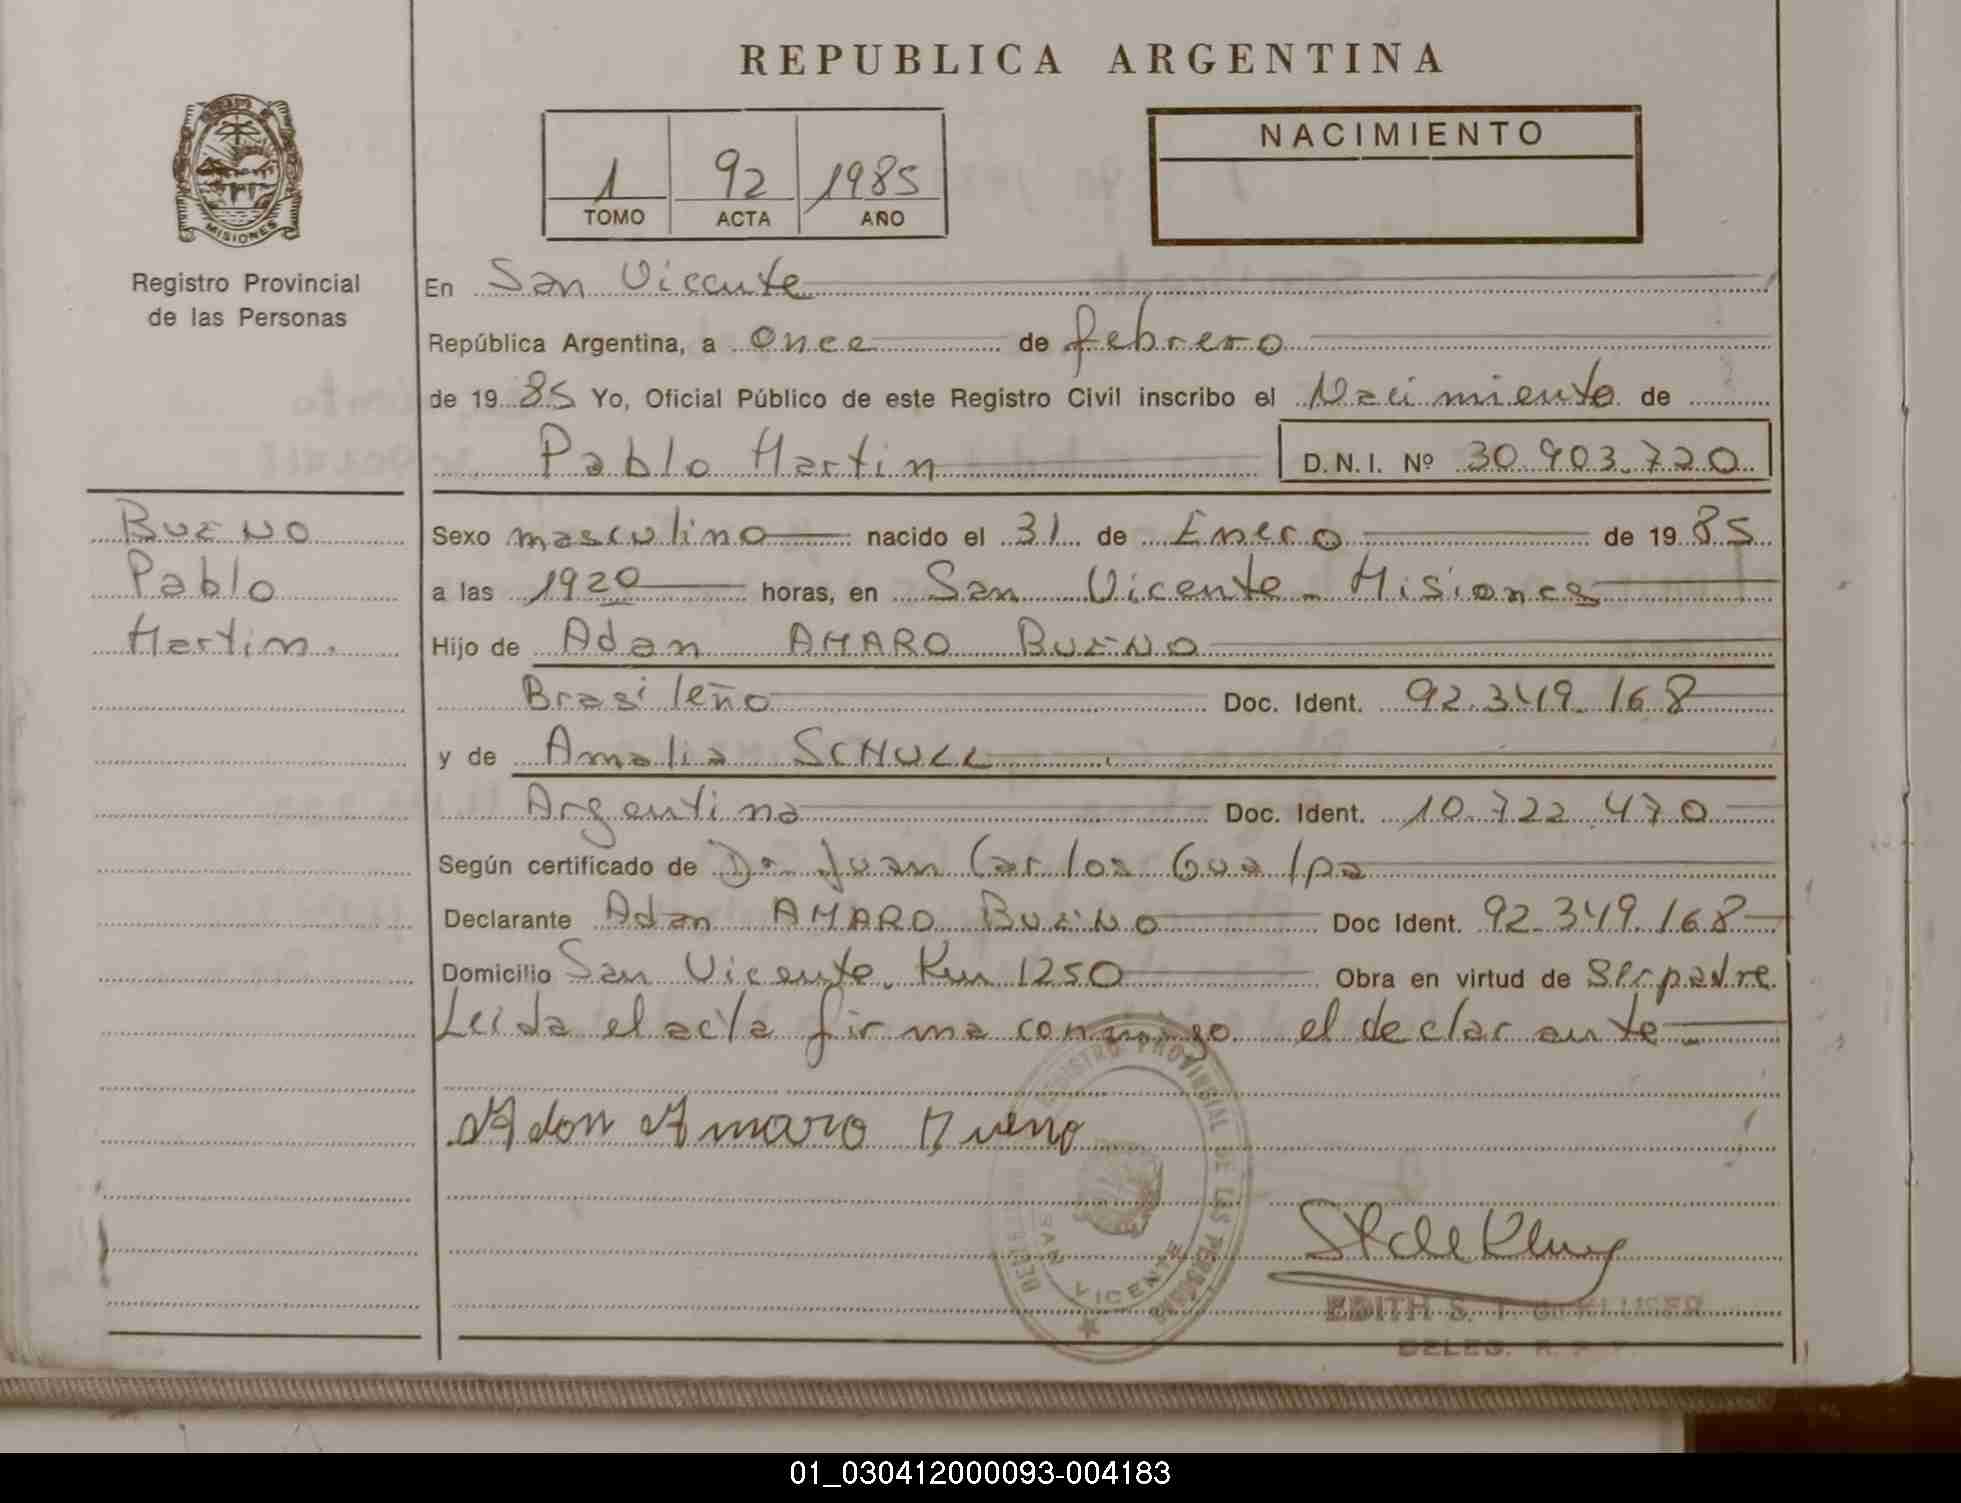 REPUBLICA ARGENTINA
MISIONES
Registro Provincial
de las Personas
1 92 1985
TOMO ACTA AÑO
NACIMIENTO
En San Vicente
República Argentina, a once de febrero
de 19 85 Yo, Oficial Público de este Registro Civil inscribo el Nacimiento de
Pablo Martin D.N.I. Nº 30.903.720
BUENO
Pablo
Martin.
Sexo masculino nacido el 31 de Enero de 19 85
a las 1920 horas, en San Vicente - Misiones
Hijo de Adan AMARO BUENO
Brasileño Doc. Ident. 92.349.168
y de Amalia SCHULL
Argentina Doc. Ident. 10.722.470
Según certificado de Dr Juan Carlos Gualpa
Declarante Adan AMARO BUENO Doc Ident. 92.349.168
Domicilio San Vicente. Km 1250 Obra en virtud de Ser padre.
Leida el acta firma conmigo el declarante -
Adon Amaro Bueno
REGISTRO PROVINCIAL DE LAS PERSONAS
SAN VICENTE
EDITH S. T.
DELEG. R.
01_030412000093-004183